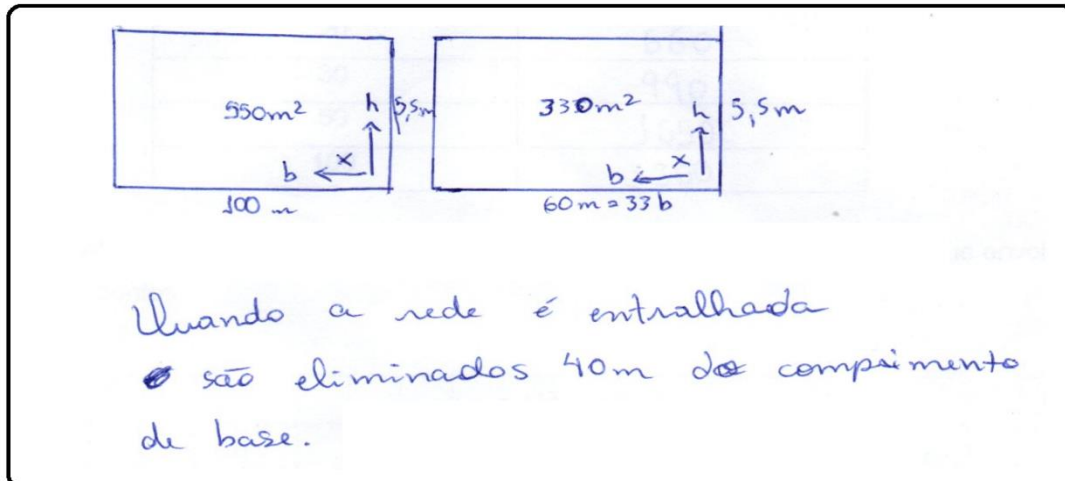 550m² h 5,5m
b x
100 m
330m² h 5,5m
b x
60m = 33 b
Quando a rede é entralhada
são eliminados 40m do comprimento
de base.